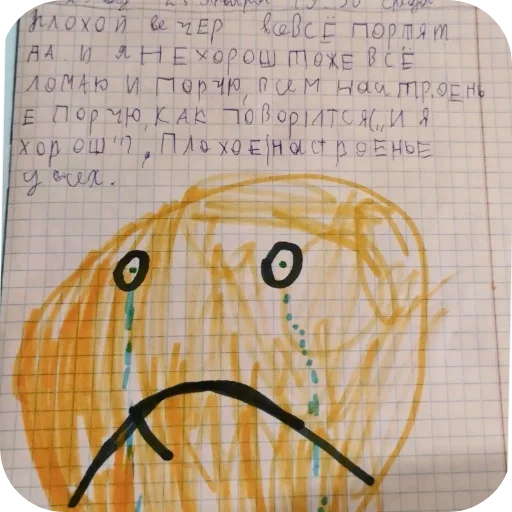 19:30 среда
плохой вечер всё портят
да. и я не хорош тоже всё
ломаю и порчю, всем настроень
е порчю, как говорится „и я
хорош", плохое настроенье
у всех.